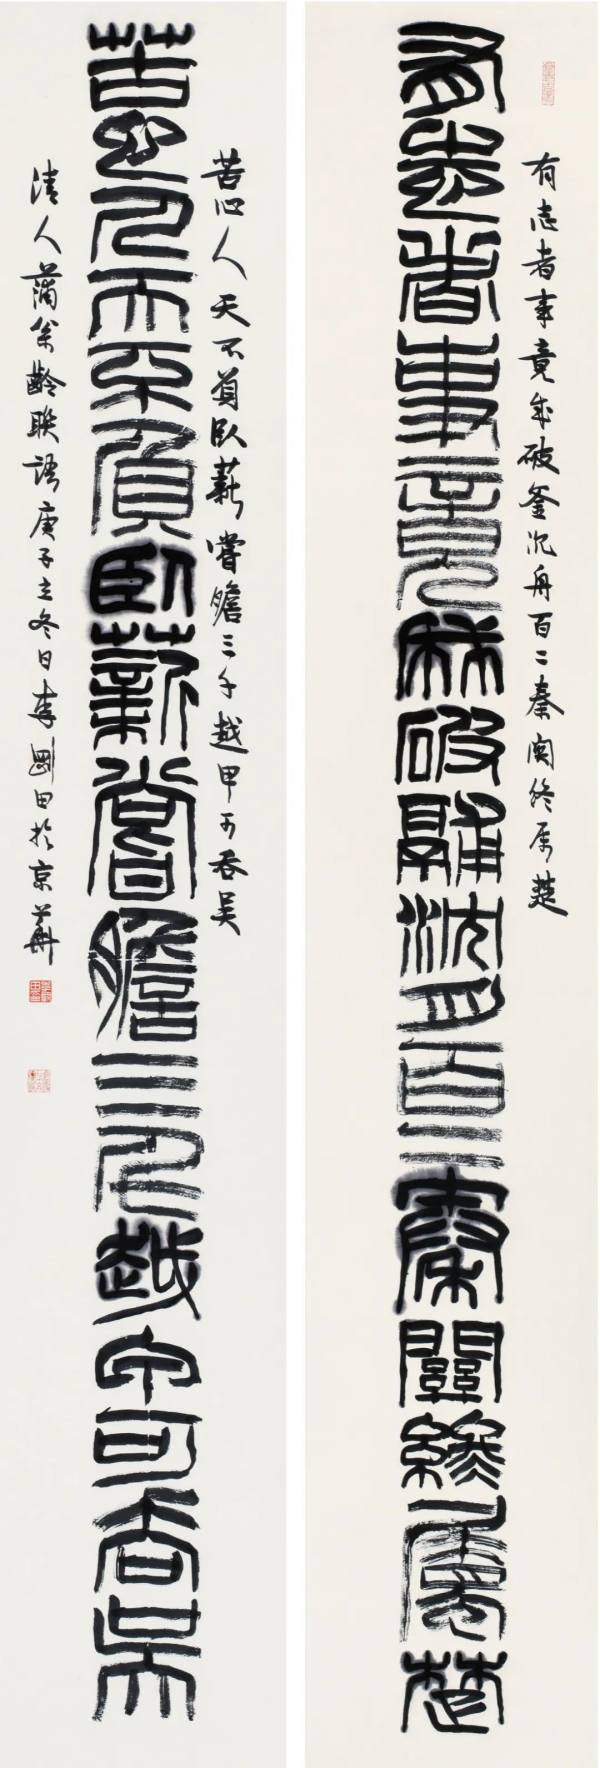 有志者事竟成破釜沉舟百二秦関终属楚
有志者事竟成破釜沈舟百二秦關終屬楚
苦心人天不負臥薪嘗膽三千越甲可吞吴
苦心人天不負臥薪嘗膽三千越甲可吞吳
清人蒲松齡联語庚子立冬日李剛田於京華